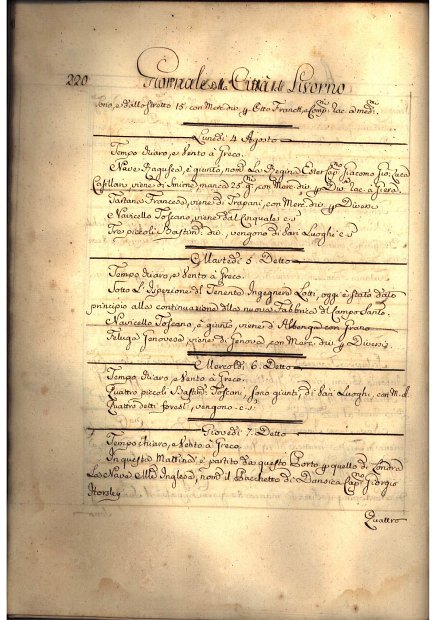 220
Giornale della Città di Livorno
sono, e dallo stretto 15. con Merc. div. p. Otto Franck, e Comp. rac. a med.
Lunedì 4 Agosto
Tempo chiaro, e Vento à Greco.
Nave Ragusea, è giunto, nom. La Regina Ester Cap.no Giacomo Gio: Luca
Castllari, viene di Smirne, manca 25 g.i, con Merc. div. p. Div. rac. a
Tartano Francese, viene di Trapani, con Merc. div. p. Diversi
Navicello Toscano, viene dal Cinquale e s.
Tre piccoli Bastim. div., vengono di vari Luoghi e s.
Martedì 5. Detto
Tempo chiaro, e Vento à Greco.
Sotto L'Ispezione del Tenente Ingegnere Lotti, oggi è stato dato
principio alla continuazione della nuova Fabbrica del Campo Santo.
Navicello Toscano, è giunto, viene d'Albenga con Grano
Feluga Genovese, viene di Genova, con Merc. div. p. Diversi
Mercoldì 6. Detto
Tempo chiaro, e Vento à Greco.
Quattro piccoli Bastim. Toscani, sono giunti, di vari Luoghi, con M. d.
Quattro detti foresti, vengono e s.
Giovedì 7. Detto
Tempo chiaro, e Vento à Greco
In questa Mattina, è partito da questo Porto p. quello di Londra
La Nave Inglese, nom. il Pacchetto di Dansica Cap.no Giorgio
Horsley
Quattro